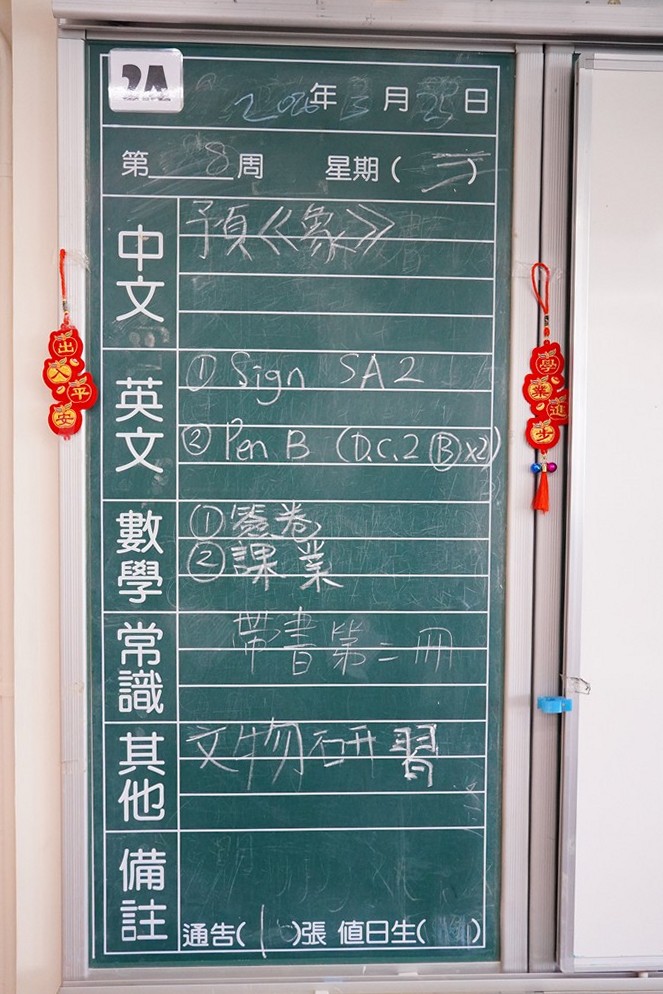 2A
2026年 3月 25日
第 8 周 星期(三)
中文
預《象》
英文
① Sign SA2
② Pen B (D.C.2 Ⓑx2)
數學
①簽卷
②課業
常識
帶書第二冊
其他
文物研習
備註
通告( 1 )張 值日生( )
出入平安
學業進步